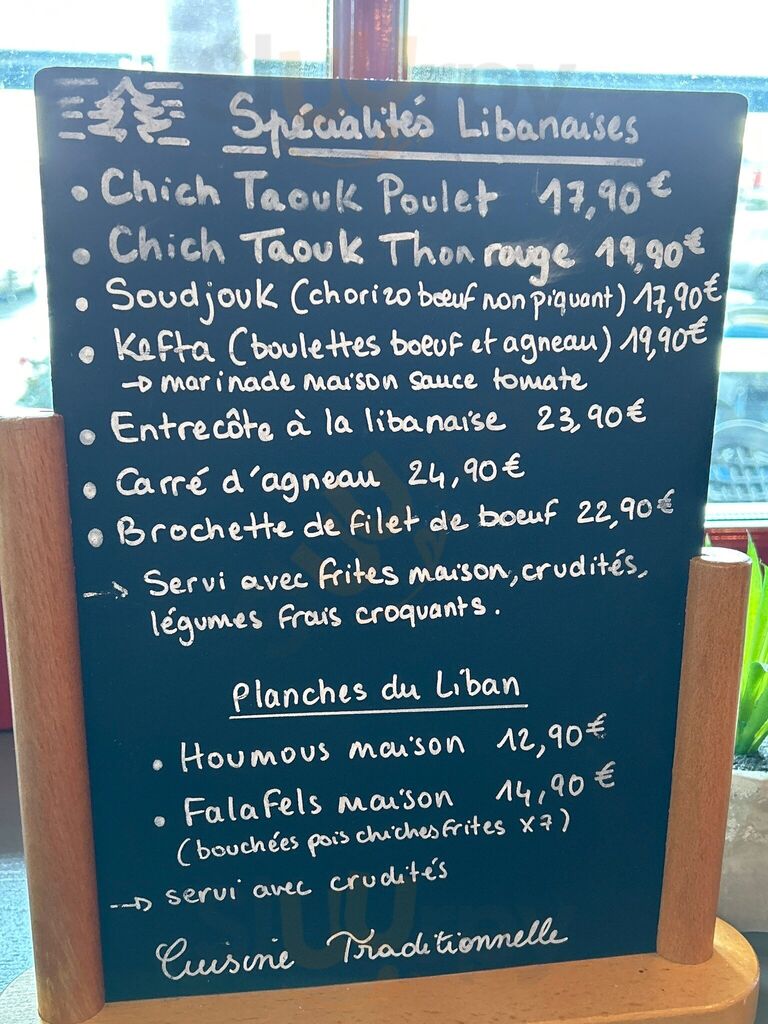 Spécialités Libanaises
• Chich Taouk Poulet 17,90€
• Chich Taouk Thon rouge 19,90€
• Soudjouk (chorizo boeuf non piquant) 17,90€
• Kefta (boulettes boeuf et agneau) 19,90€
→ marinade maison sauce tomate
• Entrecôte à la libanaise 23,90€
• Carré d'agneau 24,90€
• Brochette de filet de boeuf 22,90€
→ Servi avec frites maison, crudités,
légumes frais croquants.
Planches du Liban
• Houmous maison 12,90€
• Falafels maison 14,90€
(bouchées pois chiches frites x7)
→ servi avec crudités
Cuisine Traditionnelle